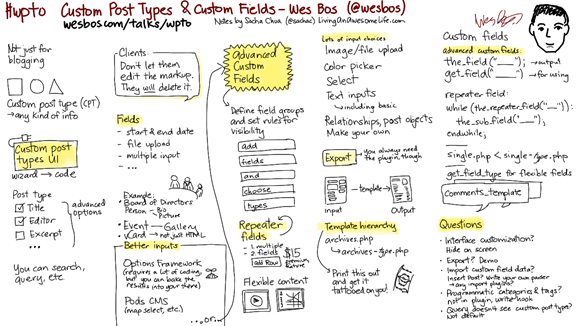 #wpto Custom Post Types & Custom Fields - Wes Bos (@wesbos)
wesbos.com/talks/wpto
Notes by Sacha Chua (@sachac) LivingAnAwesomeLife.com
Wes Bos
Not just for
blogging
Custom post type (CPT)
→ any kind of info
Custom post
types UI
wizard → code
Post type
Title
Editor
Excerpt
...
advanced
options
You can search,
query, etc.
Clients:
Don't let them
edit the markup.
They will delete it.
Fields
- start & end date
- file upload
- multiple input
- ...
Example:
• Board of Directors
Person - Bio
- Picture
• Event - Gallery
• vCard → not just HTML
Better inputs
Options Framework
(requires a lot of coding,
but you can bake the
results into your theme)
Pods CMS
(map select, etc.)
...or...
Advanced
Custom
Fields
Define field groups
and set rules for
visibility
add
fields
and
choose
types
Repeater
fields
1. multiple
2. fields
Add Row
$15
Flexible content
Lots of input choices
Image/file upload
Color picker
Select
Text inputs
→ including basic
Relationships, post objects
Make your own
Export
You always need
the plugin, though
Input
→template→
Output
Template hierarchy
archives.php
Print this out
and get it
tattooed on you!
Custom fields
advanced custom fields:
the_field("___"); → output
get_field("___") → for using
repeater field:
while (the_repeater_field("___")):
the_sub_field("___");
endwhile;
get_field_type for flexible fields
comments_template
Questions
• Interface customization?
Hide on screen
• Export? Demo
• Import custom field data?
Insert post? Write your own parser
→ any import plugins?
• Programmatic categories & tags?
not in plugin, write hook
• Query doesn't see custom post type?